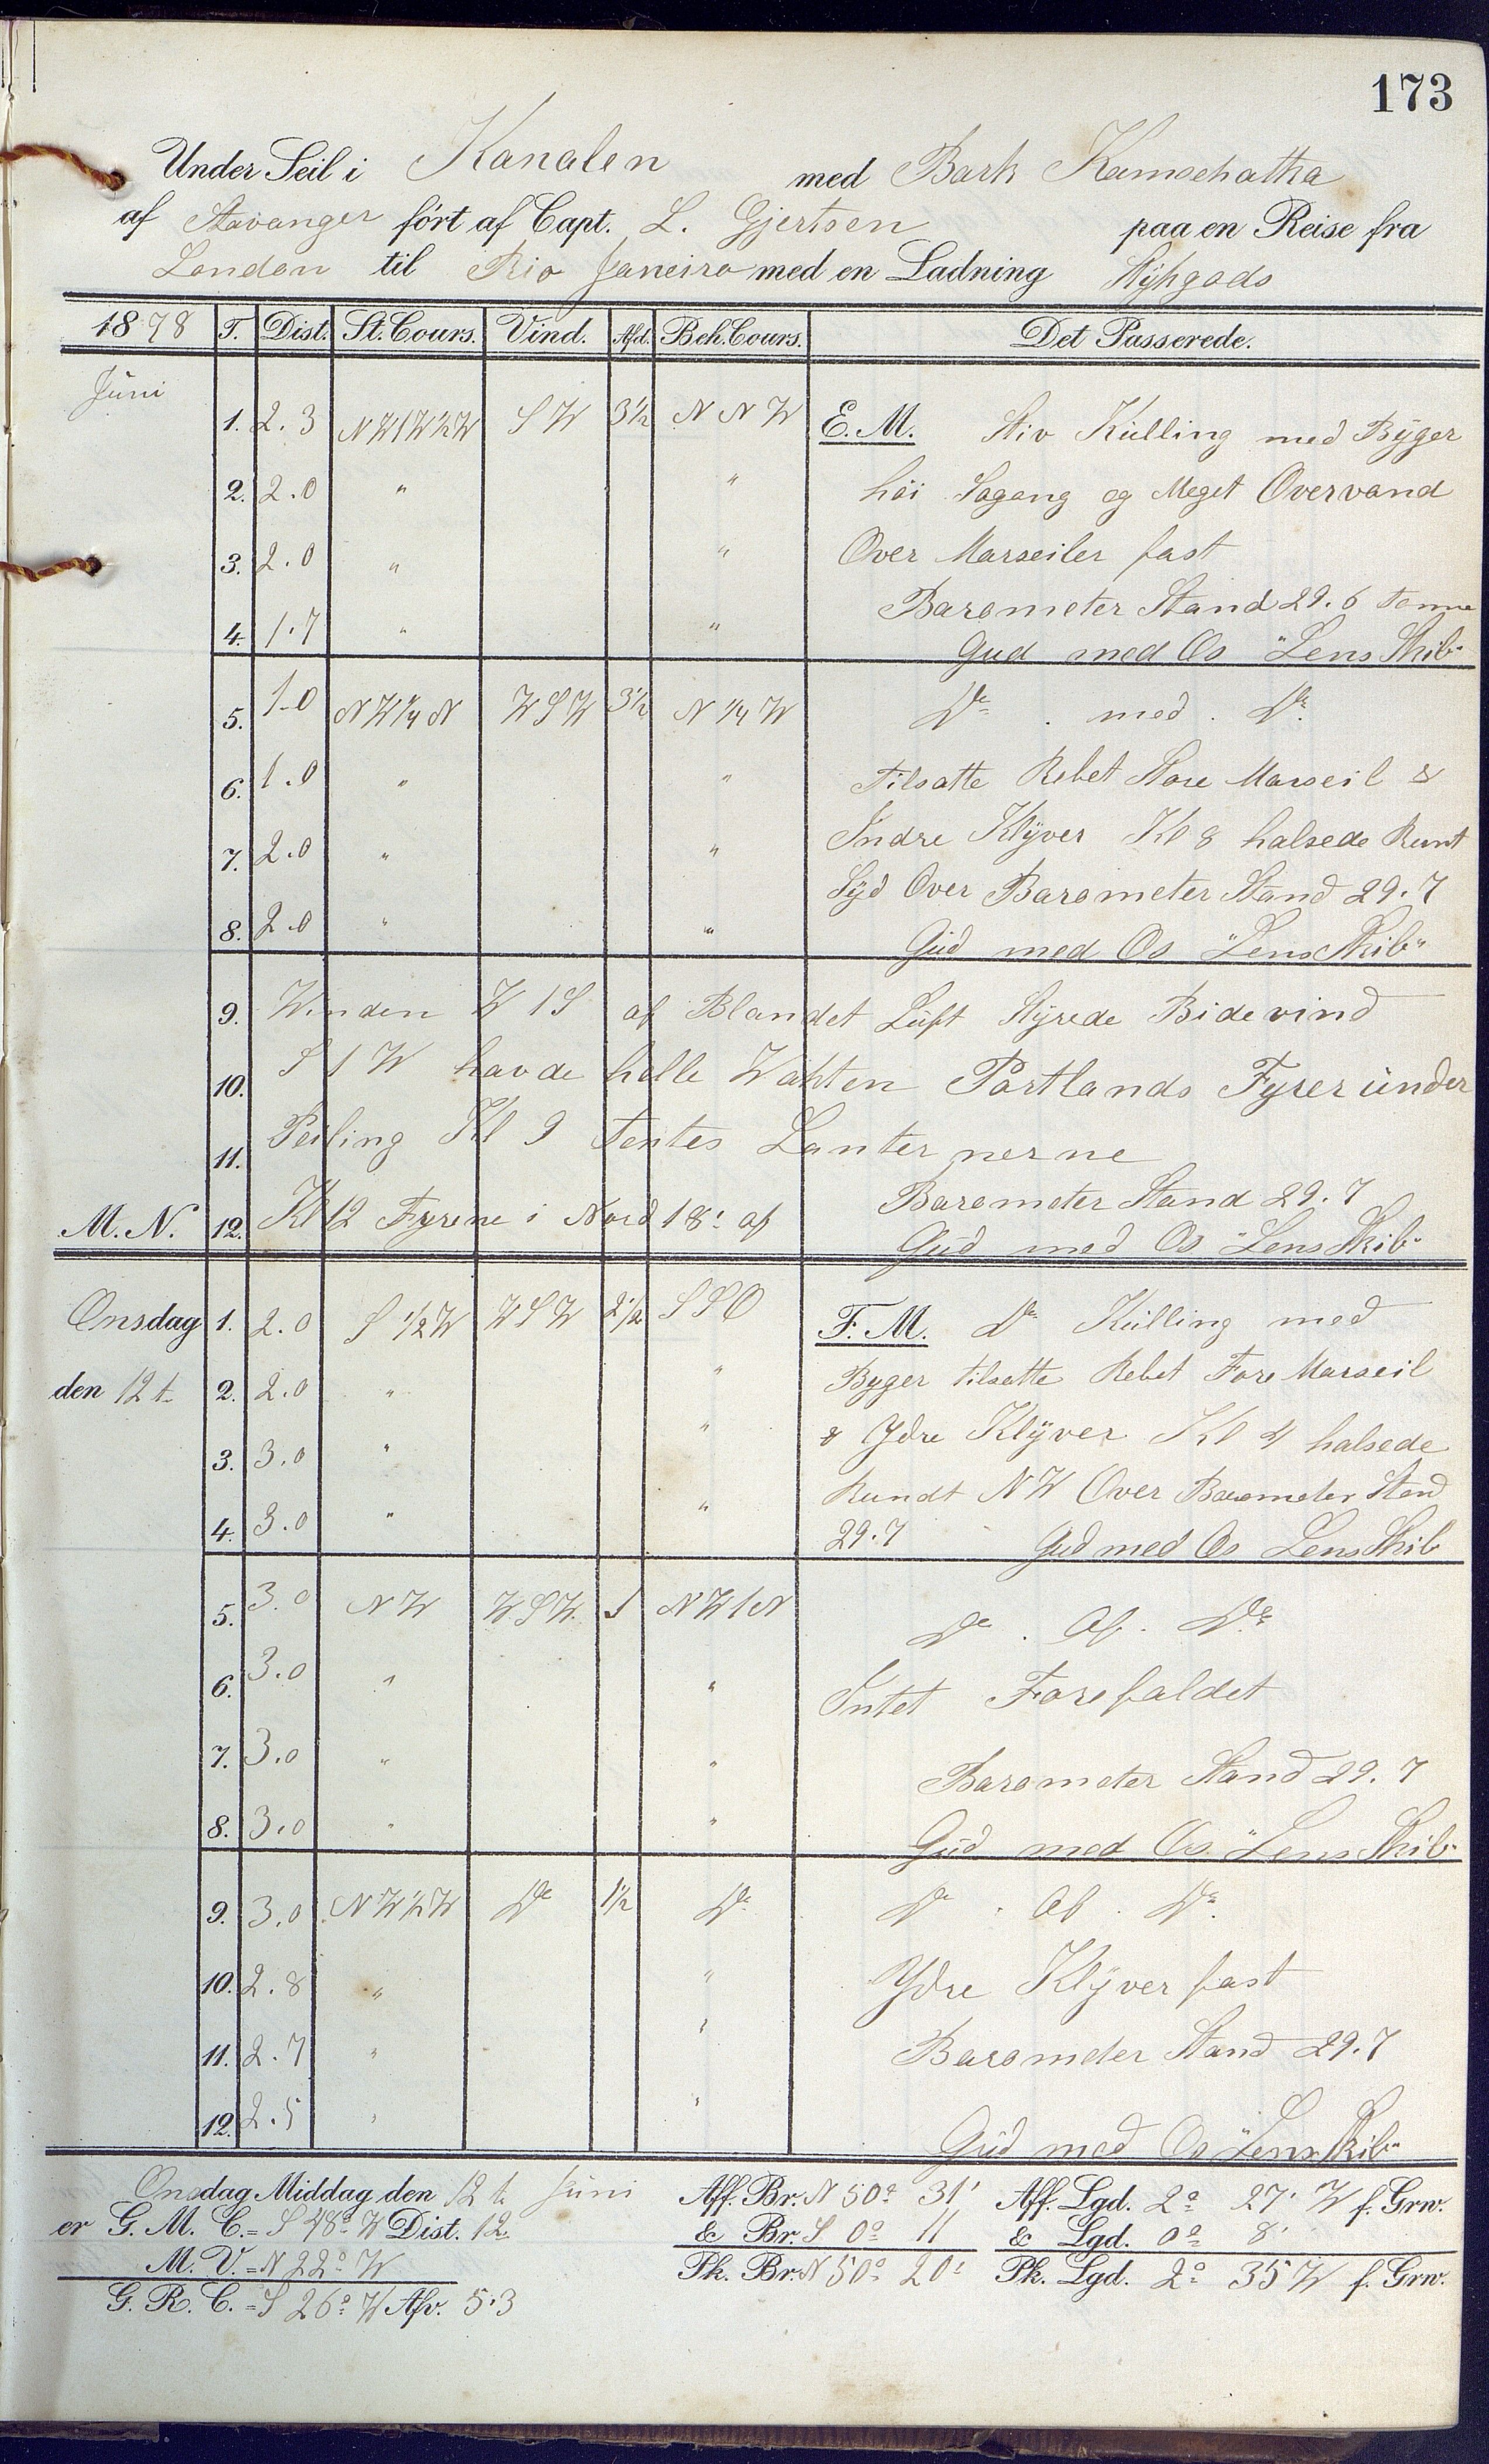 173
Under Seil i Kanalen med Bark Kamschatka
af Stavanger fört af Capt. L. Gjertsen paa en Reise fra
London til Rio Janeiro med en Ladning Stÿkgods
1878 T. Dist. St. Cours. Vind. Afd. Beh. Cours. Det Passerede.
Jüni
1. 2.3 NW1W½W SW 3½ NNW E.M. Stiv Külling med Bÿger
2. 2.0 " " höi Sogang og Meget Overvand
3. 2.0 " " Over Marseiler fast
4. 1.7 " " Barometer Stand 29.6 Tomme
Gud med Os "Lens Skib"
5. 1.0 NW¼N WSW 3½ N¼W Do . med . Do.
6. 1.0 " " Tilsatte Rebet Store Marseil &
7. 2.0 " " Indre Klÿver Kl 8 halsede Runt
8. 2.0 " " Sÿd Over Barometer Stand 29.7
Güd med Os "Lens Skib"
9. Winden W1S af Blandet Lüft Stÿrede Bidevind
10. S1W havde helle Wakten Portlands Fyrer ünder
11. Peiling Kl 9 Tentes Lanternerne
M.N. 12. Kl 12 Fyrene i Nord 18' af Barometer Stand 29.7
Güd med Os "Lens Skib"
Onsdag 1. 2.0 S½W WSW 2½ SSO F.M. Do Külling med
den 12t. 2. 2.0 " " Byger tilsette Rebet Fore Marseil
3. 3.0 " " & Ydre Klÿver Kl 4 halsede
4. 3.0 " " Rundt NW Over Barometer Stand
29.7 Gud med Os Lens Skib
5. 3.0 NW WSW. 1 NW1N Do . Af . Do.
6. 3.0 " " Intet Forefaldet
7. 3.0 " " Barometer Stand 29.7
8. 3.0 " " Güd med Os "Lens Skib"
9. 3.0 NW½W Do 1½ Do. Do . Af . Do.
10. 2.8 " " Ydre Klÿver fast
11. 2.7 " " Barometer Stand 29.7
12. 2.5 " " Güd med Os "Lens Skib"
Onsdag Middag den 12t. Jüni Aff. Br. N 50° 31' Aff. Lgd. 2° 27' W f. Grw.
er G. M. C. = S 48° W Dist. 12. & Br. S 0° 11 & Lgd. 0° 8'
M. V. = N 22° W Pk. Br. N 50° 20' Pk. Lgd. 2° 35 W f. Grw.
G. R. C. = S 26° W Afv. 5.3